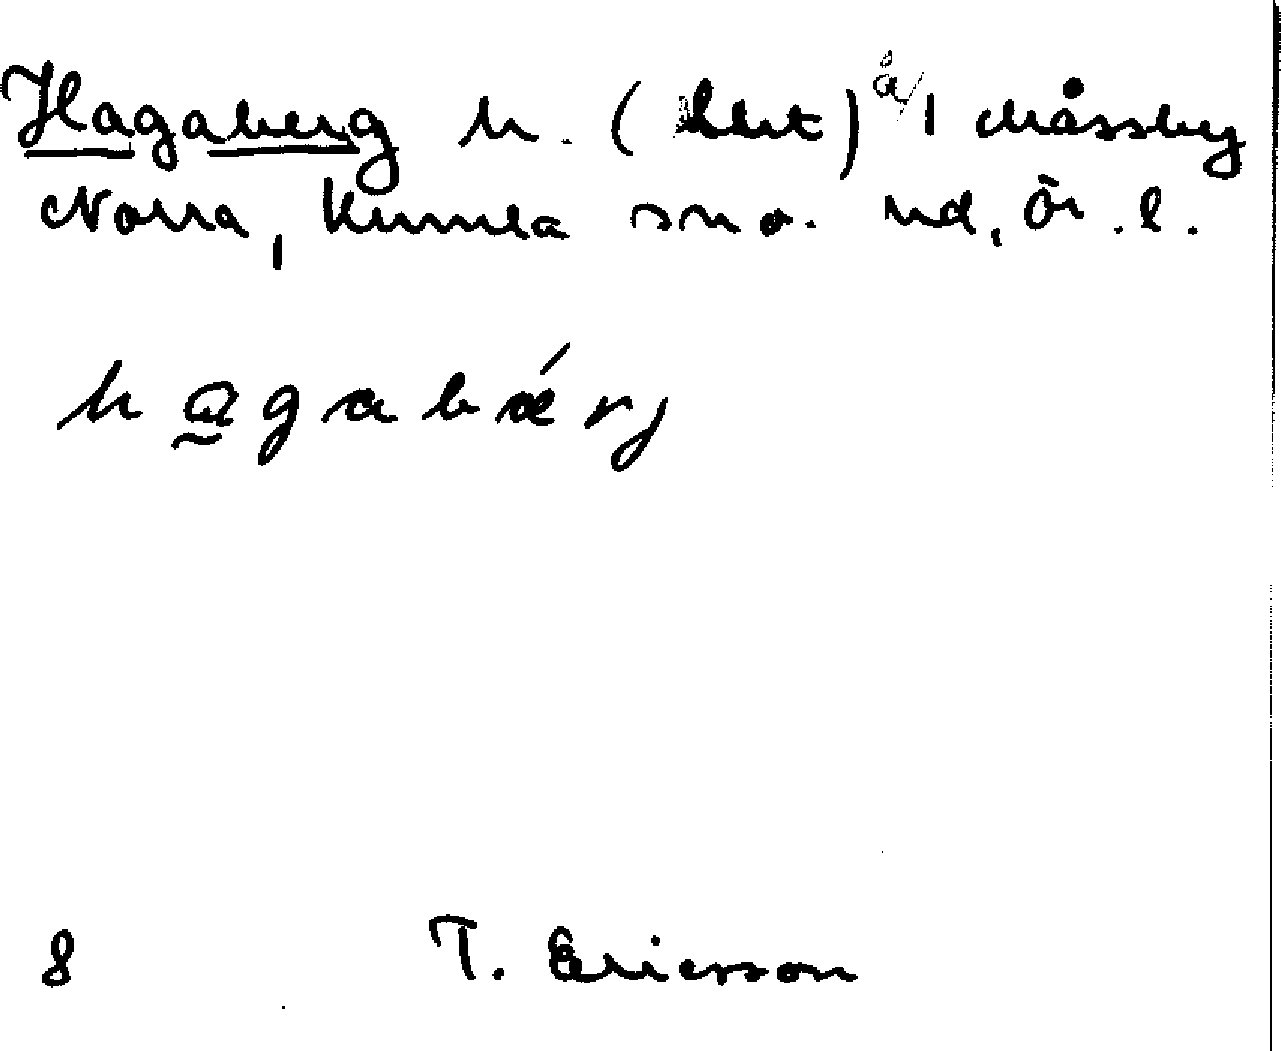 Hagaberg h. (lht) å/1 Måssby
Norra, Kumla sn o. hd, Ör. l.
hagabǽrj
8 T. Ericsson